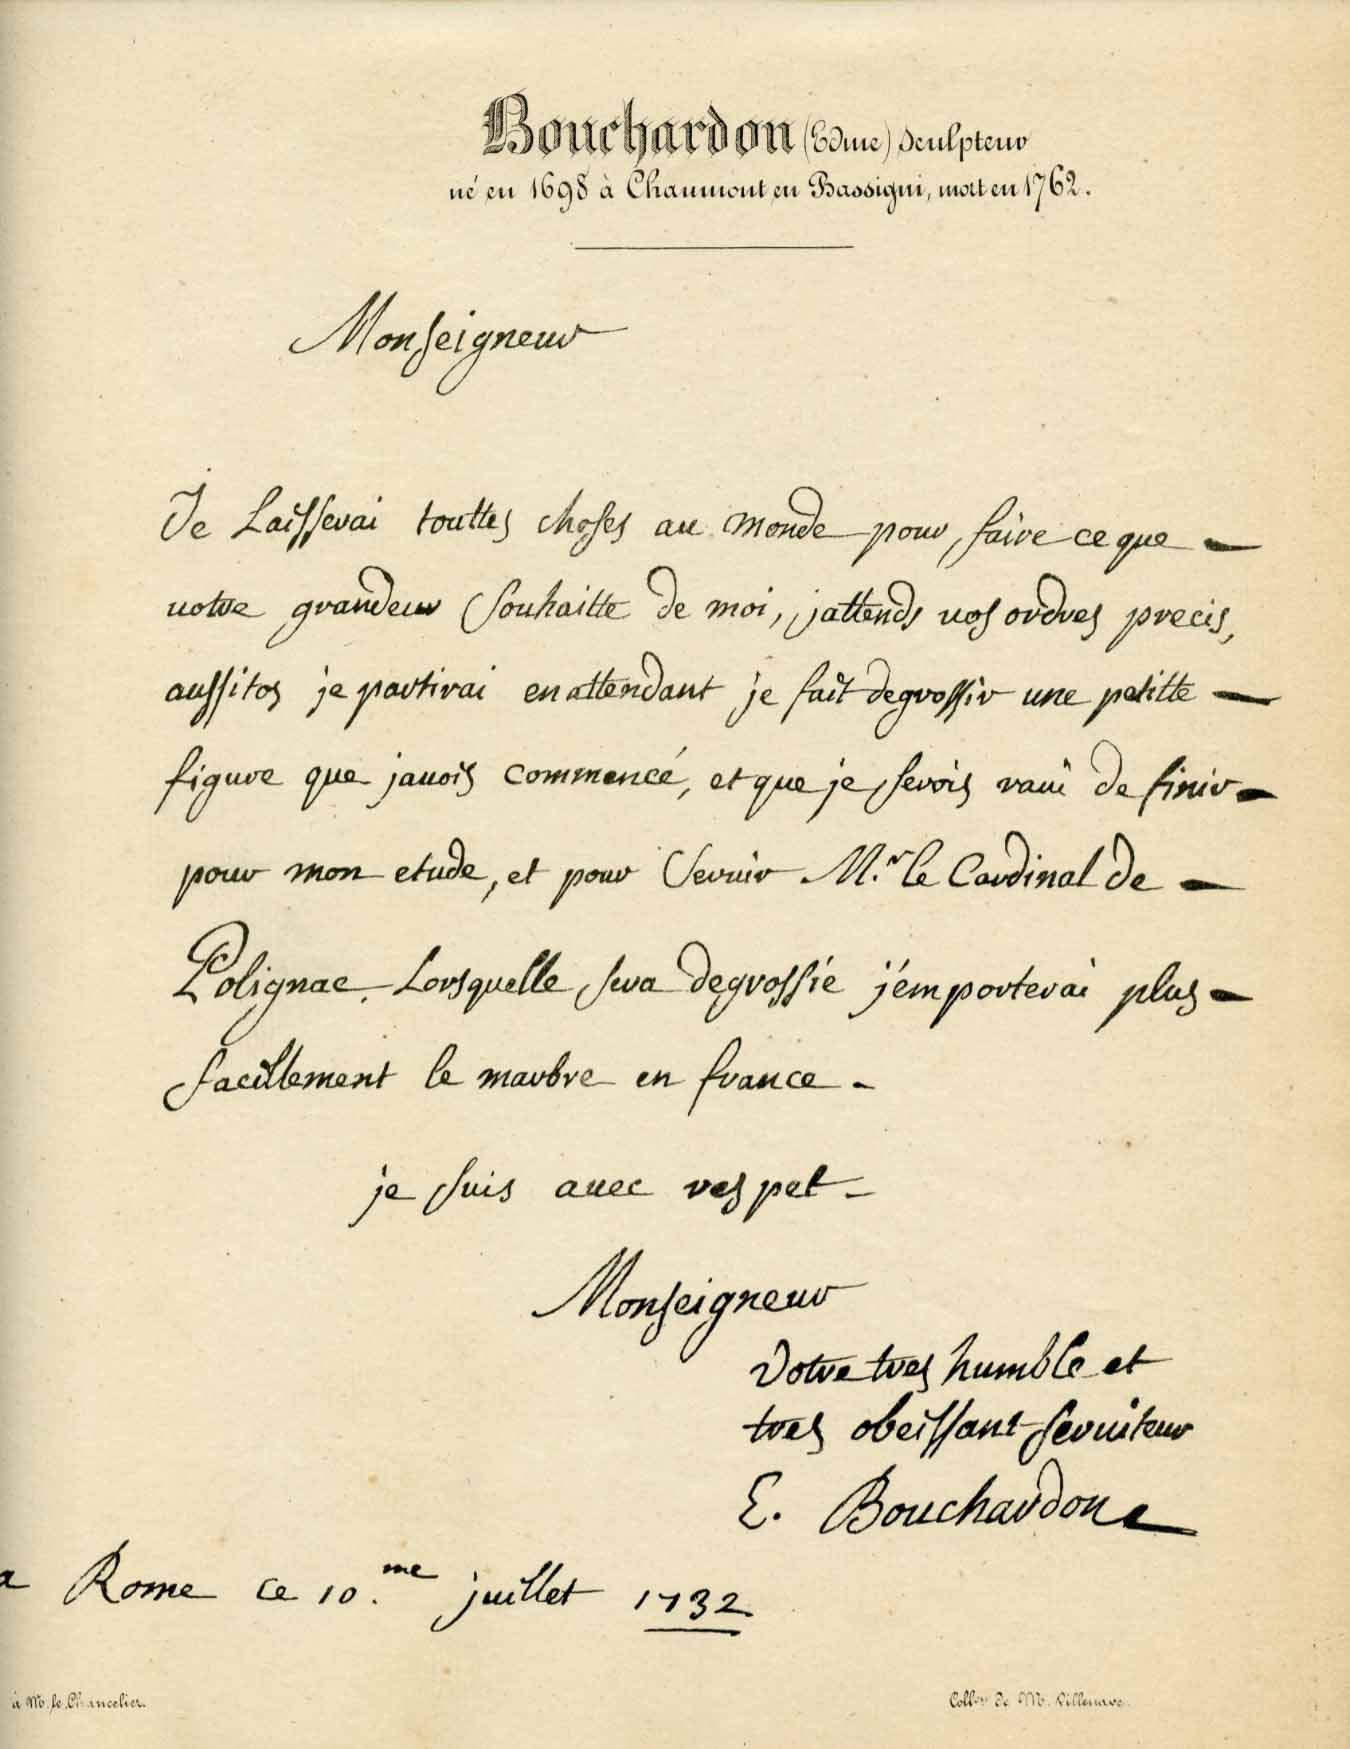 Bouchardon (Edme) Sculpteur
né en 1698 à Chaumont en Bassigni, mort en 1762.
Monseigneur
Je Laisserai touttes choses au monde pour faire ce que
votre grandeur souhaitte de moi, jattends vos ordres precis,
aussitos je partirai en attendant je fait degrossir une petitte
figure que javois commencé, et que je serois ravi de finir
pour mon etude, et pour servir M.r le Cardinal de
Polignac. Lorsquelle sera degrossie j'emporterai plus
facillement le marbre en france.
je suis avec respet
Monseigneur
Votre tres humble et
tres obeissant serviteur
E. Bouchardon
a Rome ce 10.me juillet 1732
à M. le Chancelier.
Coll.on de M. Villenave.